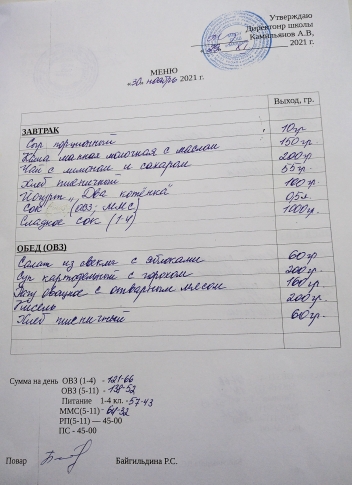 Утверждаю
Директор школы
Камальянов А.В.
2021 г.
МЕНЮ
«30» ноября 2021 г.
Выход, гр.
ЗАВТРАК
Сыр порционный 10гр
Каша манная молочная с маслом 150гр
Чай с лимоном и сахаром 200гр
Хлеб пшеничный 55гр.
Йогурт "Два котёнка" 100гр
Сок (ОВЗ, ММС) 0,5л.
Сладкое сок (1-4) 1000гр.
ОБЕД (ОВЗ)
Салат из свеклы с яблоками 60гр.
Суп картофельный с горохом 200гр.
Рагу овощное с отварным мясом 160гр.
Кисель 200гр.
Хлеб пшеничный 60гр.
Сумма на день ОВЗ (1-4) - 121-66
ОВЗ (5-11) - 138-52
Питание 1-4 кл. - 57-43
ММС(5-11) - 64-32
РП(5-11) — 45-00
ПС - 45-00
Повар Байгильдина Р.С.